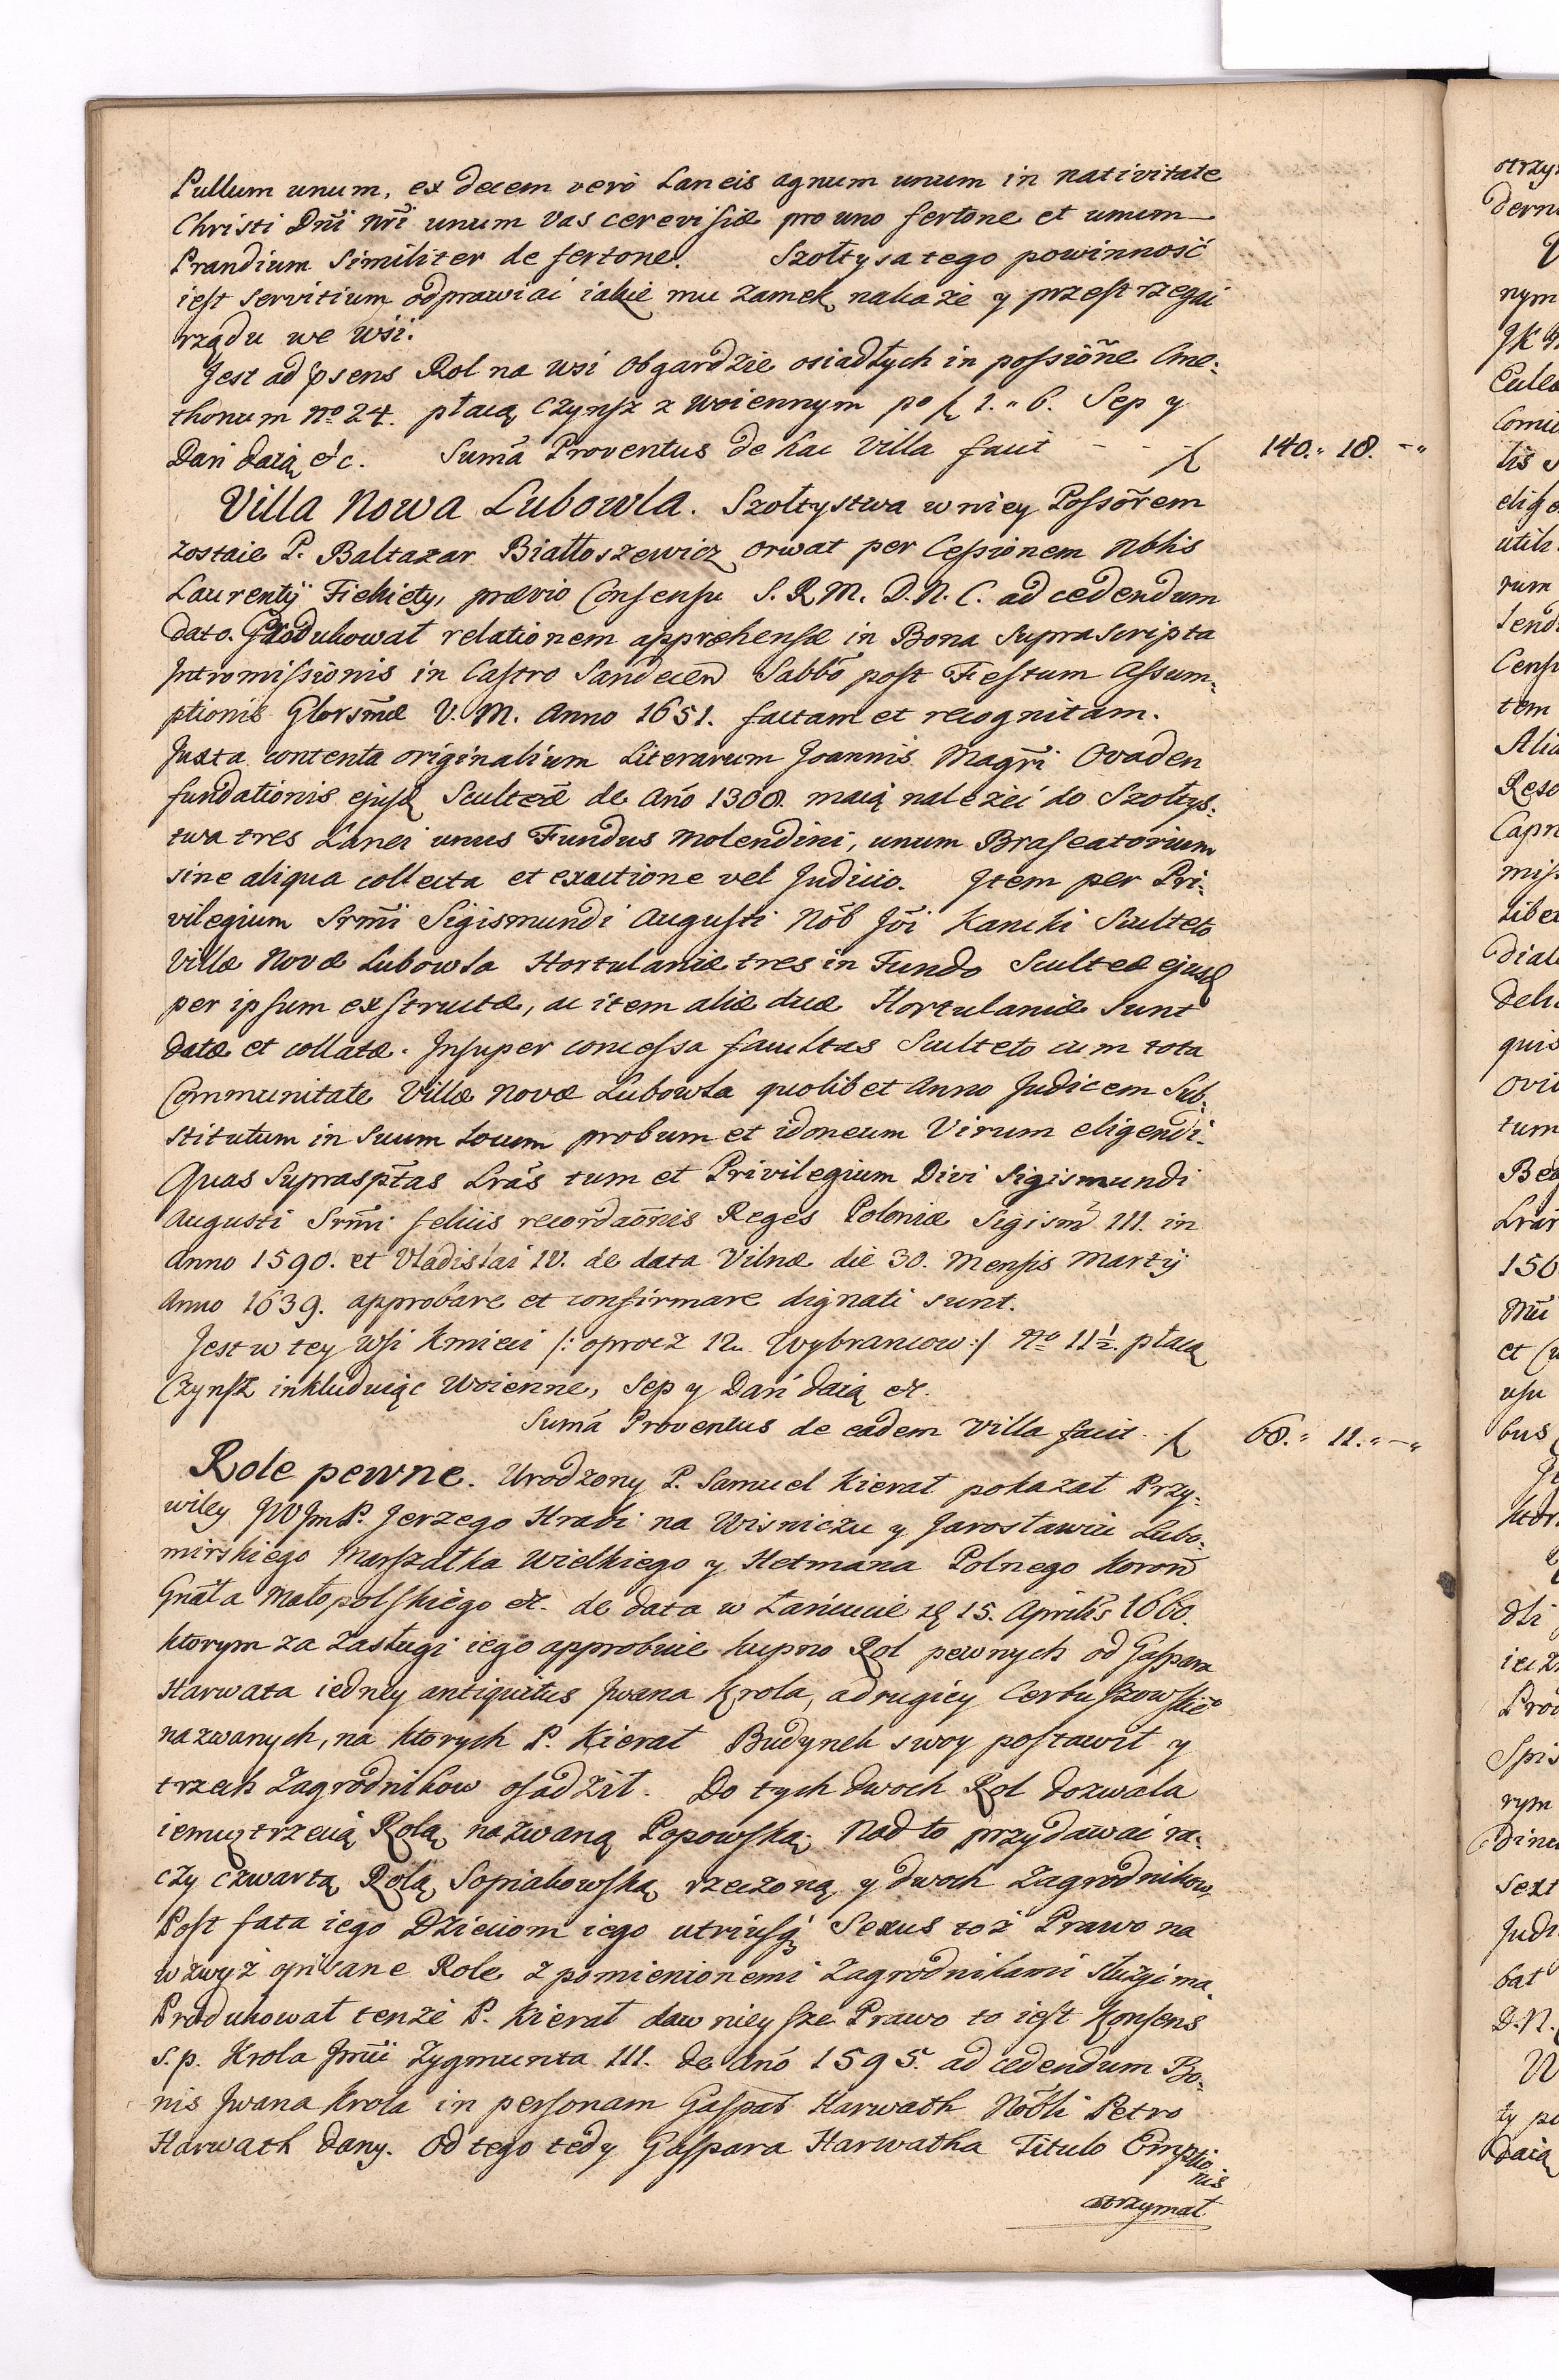 Pullum unum, ex decem verò Laneis agnum unum in nativitate
Christi Dñi Nri unum Vas cerevisiæ pro uno fertone et unum
Prandium Similiter de fertone. Szołtysa tego powinność
iest servitium odprawiać iakie mu Zamek nakaże y przestrzegać
rządu we Wsi.
Jest ad psens Rol na wsi Obgardzie osiadłych in possiõne Cme-
thonum No 24. płacą Czynsz z Woiennym po f 1. 6. Sep y
Dań daią &c. Sumã Proventus de hac Villa facit - - - f 140. 18. -
Villa Nowa Lubowla. Szołtystwa w niey Possõrem
zostaie P. Baltazar Białłoszewicz orwat per Cessionem Nblis
Laurentij Fiekiety, prævio Consensu S. R. M. D. N. C. ad cedendum
dato. Produkował relationem apprehensæ in Bona Suprascripta
Intromissionis in Castro Sandecen Sabbõ post Festum Assum-
ptionis Glorsmæ V. M. Anno 1651. factam et recognitam.
Juxta contenta originalium Literarum Joannis Magri Ovaden
fundationis ejusd Scultetiæ de Anõ 1308. maią należeć do Szołtys-
twa tres Lanei unus Fundus Molendini, unum Braseatorium
sine aliqua collecta et exactione vel Judicio. Item per Pri-
vilegium Srmi Sigismundi Augusti Nõb Jõi Kancki Sculteto
Villæ Novæ Lubowla Hortulaniæ tres in Fundo Scultetæ ejusd
per ipsum exstructæ, ac item aliæ duæ Hortulaniæ Sunt
datæ et collatæ. Insuper concessa facultas Sculteto cum tota
Communitate Villæ Novæ Lubowla quolibet Anno Judicem Sub-
stitutum in Suum Locum probum et idoneum Virum eligendi.
Quas Suprasptas Lras tum et Privilegium Divi Sigismundi
Augusti Srmi felicis recordaõnis Reges Poloniæ Sigism III. in
Anno 1590. et Vladislai IV. de data Vilnæ die 30. Mensis Martij
Anno 1639. approbare et confirmare dignati sunt.
Jest w tey Wsi Kmieci /: oprocz 12. Wybrancow :/ No 11½. płacą
Czynsz inkluduiąc Woienne, Sep y Dań daią &c.
Sumã Proventus de eadem Villa facit. f 68. 11. -
Role pewne. Urodzony P. Samuel Kierat pokazał Przy-
wiley JWJmP. Jerzego Hrabi na Wisniczu y Jarosławiu Lubo-
mirskiego Marszałka Wielkiego y Hetmana Polnego Koron
Gnała Małopolskiego &c. de data w Łańcucie d 15. Aprilis 1660.
ktorym za zasługi iego approbuie kupno Rol pewnych od Gaspara
Harwata iedney antiquitus Jwana Krola, a drugiey Cerbuszowskie
nazwanych, na ktorych P. Kierat Budynek swoy postawił y
trzech Zagrodnikow osadził. Do tych dwoch Rol dozwala
iemu trzecią Rolą nazwaną Popowską. Nad to przydawać ra-
czy czwartą Rolą Sopiakowską rzeczoną y dwoch Zagrodnikow
Post fata iego Dzieciom iego utriusq Sexus toż Prawo na
wzwyż opisane Role z pomienionemi Zagrodnikami służyć ma.
Produkował tenże P. Kierat dawnieysze Prawo to iest Konsens
s. p. Krola Jmci Zygmunta III. de Anõ 1595. ad cedendum Bo-
nis Jwana Krola in personam Gaspar Harwath Nobli Petro
Harwath dany. Od tego tedy Gaspara Harwatha Titulo Emptio
nis
otrzymał